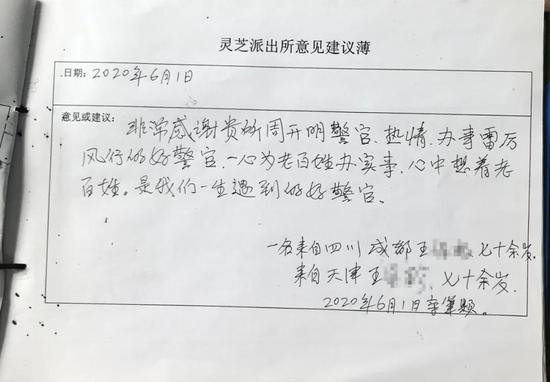 灵芝派出所意见建议薄
日期：2020年6月1日
意见或建议：
非常感谢贵所周开明警官、热情、办事雷厉
风行的好警官、一心为老百姓办实事、心中想着老
百姓。是我们一生遇到的好警官。
一名来自四川成都王 七十余岁.
来自天津王 、七十余岁.
2020年6月1日亲笔题。